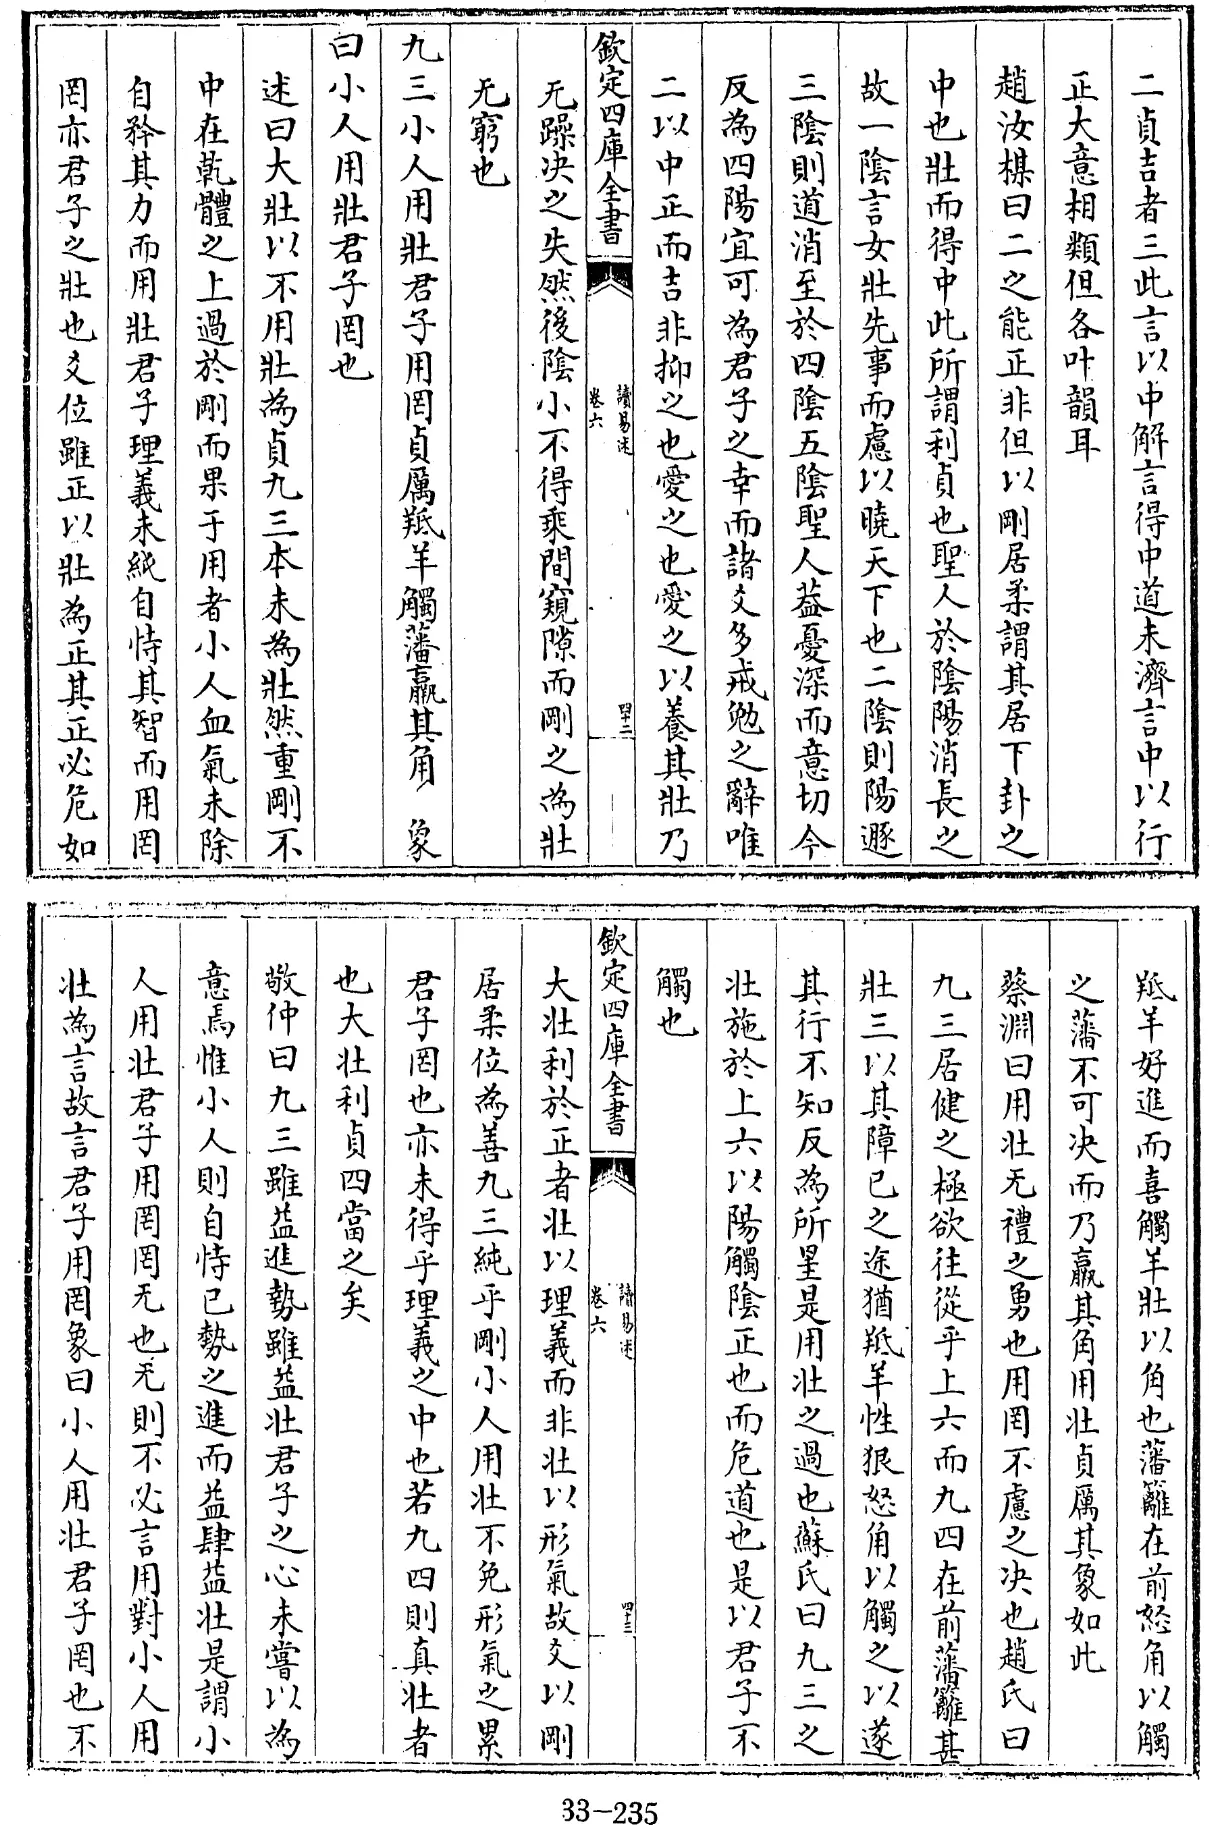 二貞吉者三此言以中解言得中道未濟言中以行
正大意相類但各叶韻耳
趙汝楳曰二之能正非但以剛居柔謂其居下卦之
中也壯而得中此所謂利貞也聖人於陰陽消長之
故一陰言女壯先事而慮以曉天下也二陰則陽遯
三陰則道消至於四陰五陰聖人葢憂深而意切今
反為四陽宜可為君子之幸而諸爻多戒勉之辭唯
二以中正而吉非抑之也愛之也愛之以養其壯乃
欽定四庫全書
讀易述
卷六
四十二
无躁决之失然後陰小不得乘間窺隙而剛之為壯
无窮也
九三小人用壯君子用罔貞厲羝羊觸藩羸其角 象
曰小人用壯君子罔也
述曰大壯以不用壯為貞九三本未為壯然重剛不
中在乾體之上過於剛而果于用者小人血氣未除
自矜其力而用壯君子理義未純自恃其智而用罔
罔亦君子之壯也爻位雖正以壯為正其正必危如
羝羊好進而喜觸羊壯以角也藩籬在前怒角以觸
之藩不可决而乃羸其角用壯貞厲其象如此
蔡淵曰用壯无禮之勇也用罔不慮之决也趙氏曰
九三居健之極欲往從乎上六而九四在前藩籬甚
壯三以其障已之途猶羝羊性狠怒角以觸之以遂
其行不知反為所罣是用壯之過也蘇氏曰九三之
壯施於上六以陽觸陰正也而危道也是以君子不
觸也
欽定四庫全書
讀易述
卷六
四十三
大壯利於正者壯以理義而非壯以形氣故爻以剛
居柔位為善九三純乎剛小人用壯不免形氣之累
君子罔也亦未得乎理義之中也若九四則真壯者
也大壯利貞四當之矣
敬仲曰九三雖益進勢雖益壯君子之心未嘗以為
意焉惟小人則自恃已勢之進而益肆益壯是謂小
人用壯君子用罔罔无也无則不必言用對小人用
壯為言故言君子用罔象曰小人用壯君子罔也不
33-235